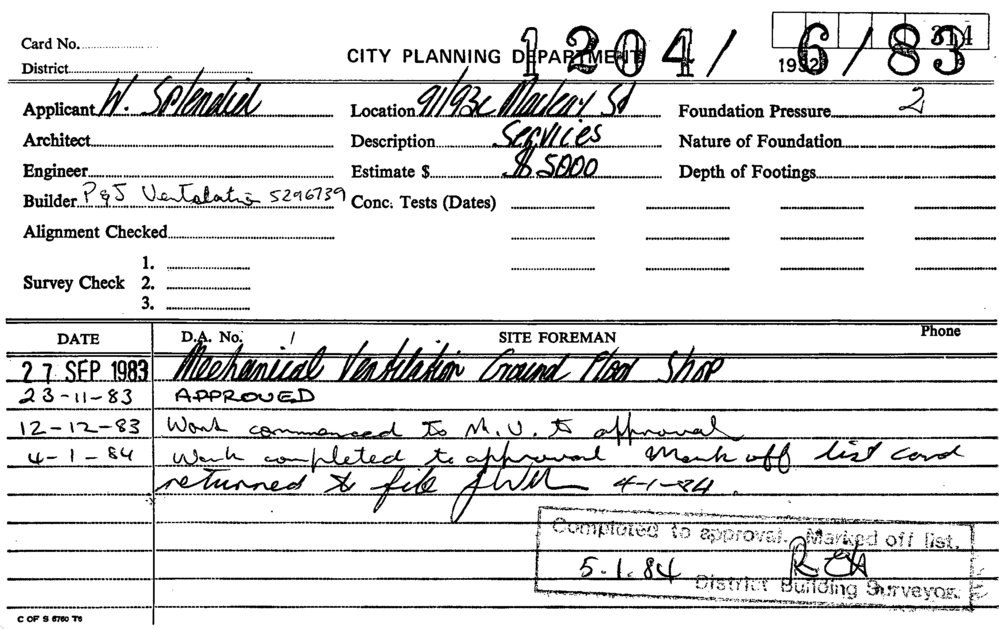 Card No.
CITY PLANNING DEPARTMENT 1204/6/83
District
Applicant W. Splendid Location 91/93c Macleay St Foundation Pressure 2
Architect Description Services Nature of Foundation
Engineer Estimate $ $5000 Depth of Footings
Builder P&J Ventilation 5296739 Conc. Tests (Dates)
Alignment Checked
1.
Survey Check 2.
3.
DATE D.A. No. SITE FOREMAN Phone
27 SEP 1983 Mechanical Ventilation Ground Floor Shop
23-11-83 APPROVED
12-12-83 Work commenced to M.V. to approval
4-1-84 Work completed to approval Mark off list card
returned to file 4-1-84.
Completed to approval. Marked off list.
5.1.84
District Building Surveyor.
C OF S 6760 T6